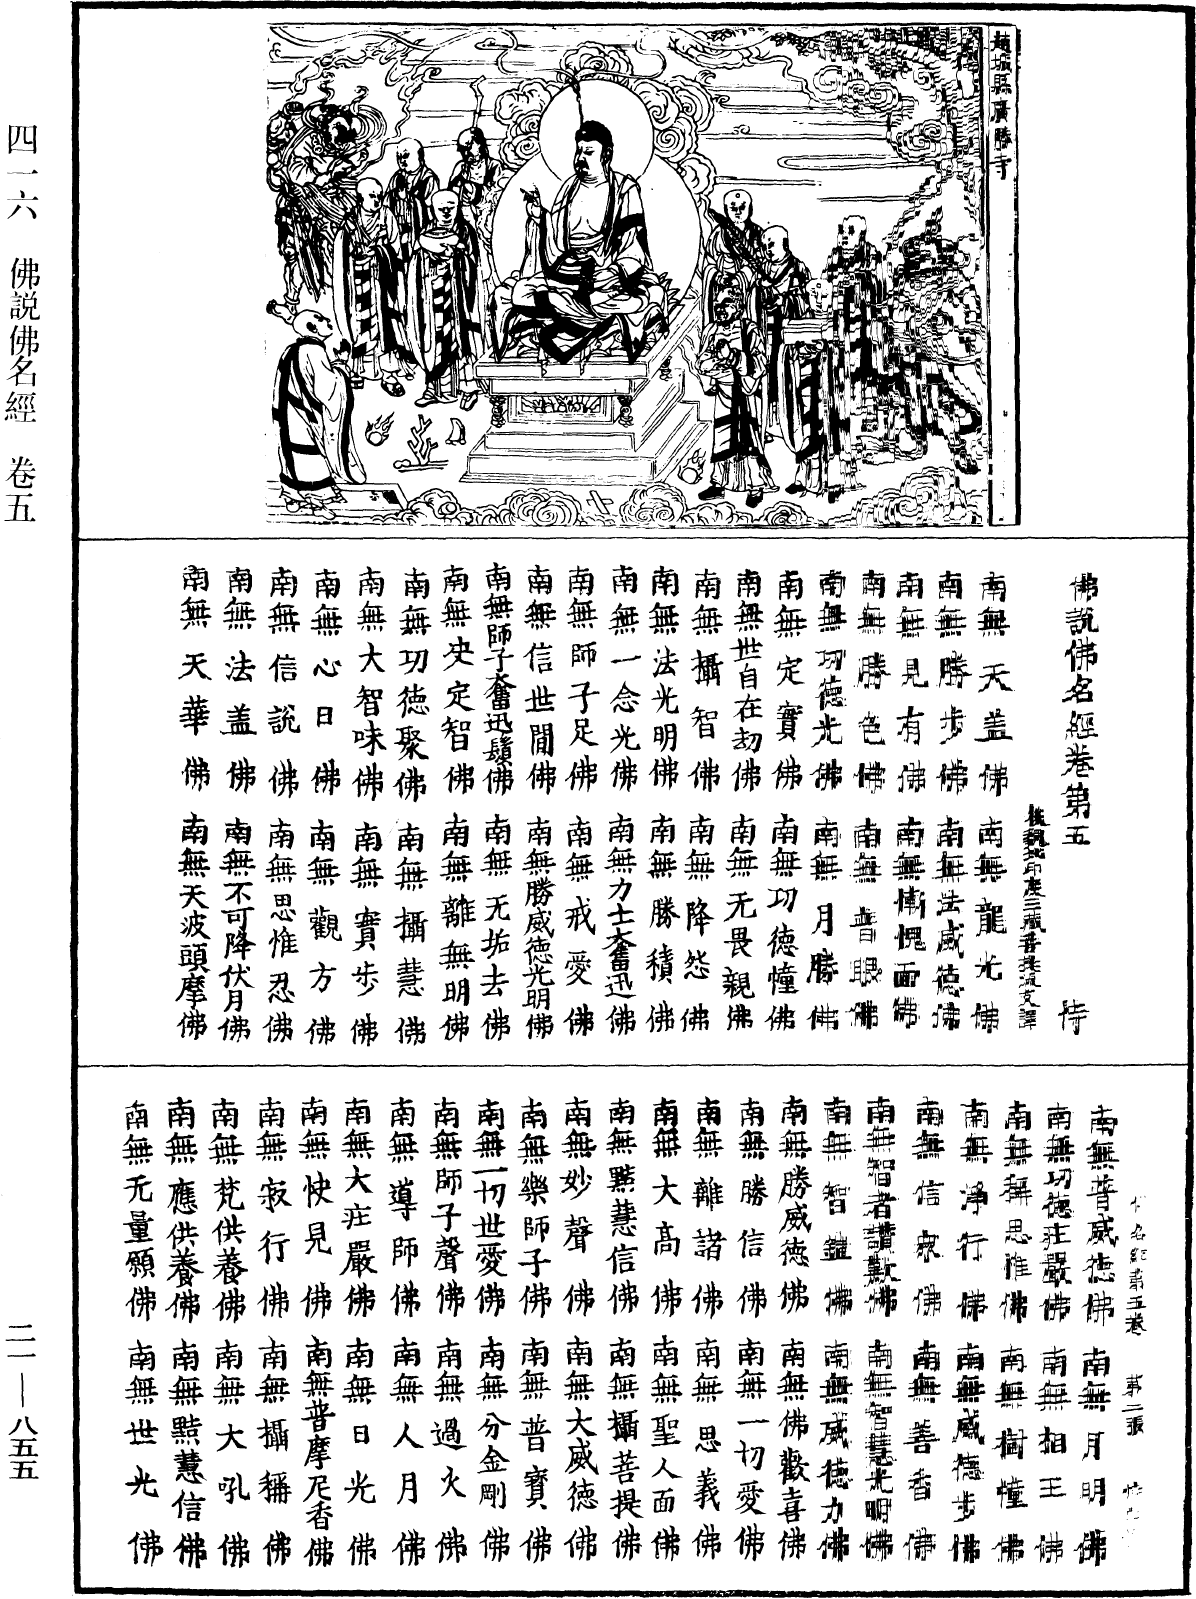 趙城縣廣勝寺
四一六　佛説佛名經　卷五
佛説佛名經卷第五　恃
後魏北印度三藏菩提流支譯
南無天盖佛　南無龍光佛
南無勝步佛　南無法威德佛
南無見有佛　南無慚愧面佛
南無勝色佛　南無普眼佛
南無功德光佛　南無月勝佛
南無定實佛　南無功德幢佛
南無世自在劫佛　南無无畏親佛
南無攝智佛　南無降怨佛
南無法光明佛　南無勝積佛
南無一念光佛　南無力士奮迅佛
南無師子足佛　南無戒愛佛
南無信世間佛　南無勝威德光明佛
南無師子奮迅鬚佛　南無无垢去佛
南無史定智佛　南無離無明佛
南無功德聚佛　南無攝慧佛
南無大智味佛　南無實步佛
南無心日佛　南無觀方佛
南無信説佛　南無思惟忍佛
南無法盖佛　南無不可降伏月佛
南無天華佛　南無天波頭摩佛
佛名經第五卷　第二張
南無普威德佛　南無月明佛
南無功德莊嚴佛　南無相王佛
南無稱思惟佛　南無樹幢佛
南無淨行佛　南無威德步佛
南無信衆佛　南無善香佛
南無智者讚歎佛　南無智慧光明佛
南無智鎧佛　南無威德力佛
南無勝威德佛　南無佛歡喜佛
南無勝信佛　南無一切愛佛
南無離諸佛　南無思義佛
南無大高佛　南無聖人面佛
南無黠慧信佛　南無攝菩提佛
南無妙聲佛　南無大威德佛
南無樂師子佛　南無普寶佛
南無一切世愛佛　南無分金剛佛
南無師子聲佛　南無過火佛
南無導師佛　南無人月佛
南無大莊嚴佛　南無日光佛
南無快見佛　南無普摩尼香佛
南無寂行佛　南無攝稱佛
南無梵供養佛　南無大吼佛
南無應供養佛　南無黠慧信佛
南無无量願佛　南無世光佛
二一—八五五